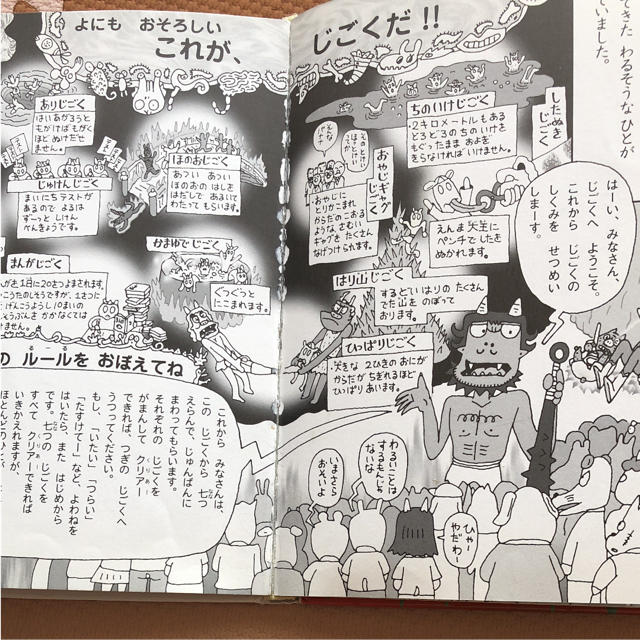 よにも おそろしい
これが、
じごくだ!!
ありじごく
はいあがろうと
もがけばもがく
ほど ぬけだせ
ません。
じゅけんじごく
まいにちテストが
あるので よるは
ずーっと しけん
べんきょうです。
まんがじごく
ほのおじごく
あつい あつい
ほのおの はしを
はだしで あるいて
わたって もらいます。
かまゆでじごく
ぐつぐつっと
にこまれます。
ちのいけじごく
2キロメートルもある
どろどろの ちの いけを
もぐったまま およぎ
きらなければ いけません。
したぬき
じごく
えんま大先生に
ペンチで したを
ぬかれます。
おやじギャグ
じごく
おやじに
とりかこまれ
からだの こおる
ような さむい
ギャグを たくさん
なげつけられます。
はり山じごく
するどい はりの たくさん
でた山を のぼって
おります。
ひっぱりじごく
大きな 2ひきの おにが
からだが ちぎれるほど
ひっぱりあいます。
てきた わるそうな ひとが
いました。
はーい、みなさん、
じごくへ ようこそ。
これから じごくの
しくみを せつめい
しまーす。
の ルールを おぼえてね
これから みなさんは、
この じごくから 七つ
えらんで、じゅんばんに
まわってもらいます。
それぞれの じごくを
がまんして クリアー
できれば、つぎの じごくへ
うつってください。
もし、「いたい」「つらい」
「たすけてー」など、よわねを
はいたら、また はじめから
です。七つの じごくを
すべて クリアーできれば
いきかえれますが、
わるいことは
するもんじゃ
ないな
いまさら
おそいよ
ひゃー
やだわー